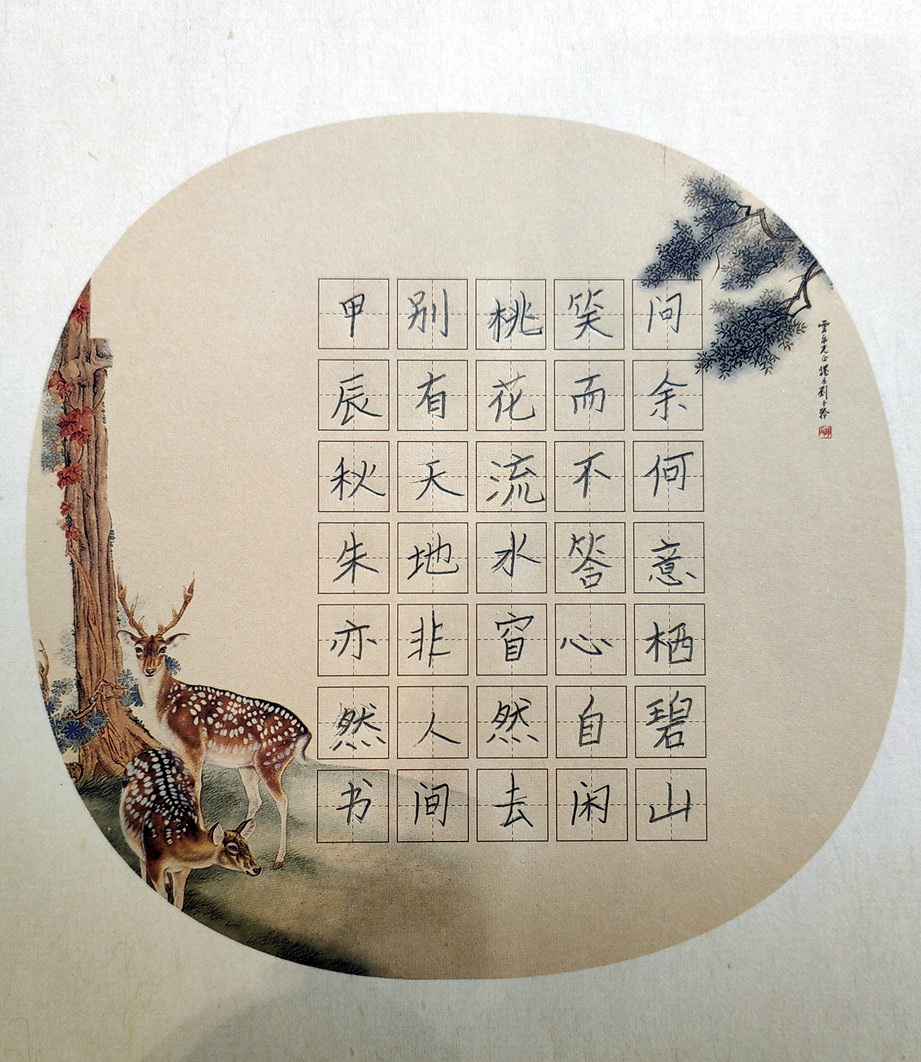 问余何意栖碧山
笑而不答心自闲
桃花流水窅然去
别有天地非人间
甲辰秋朱亦然书